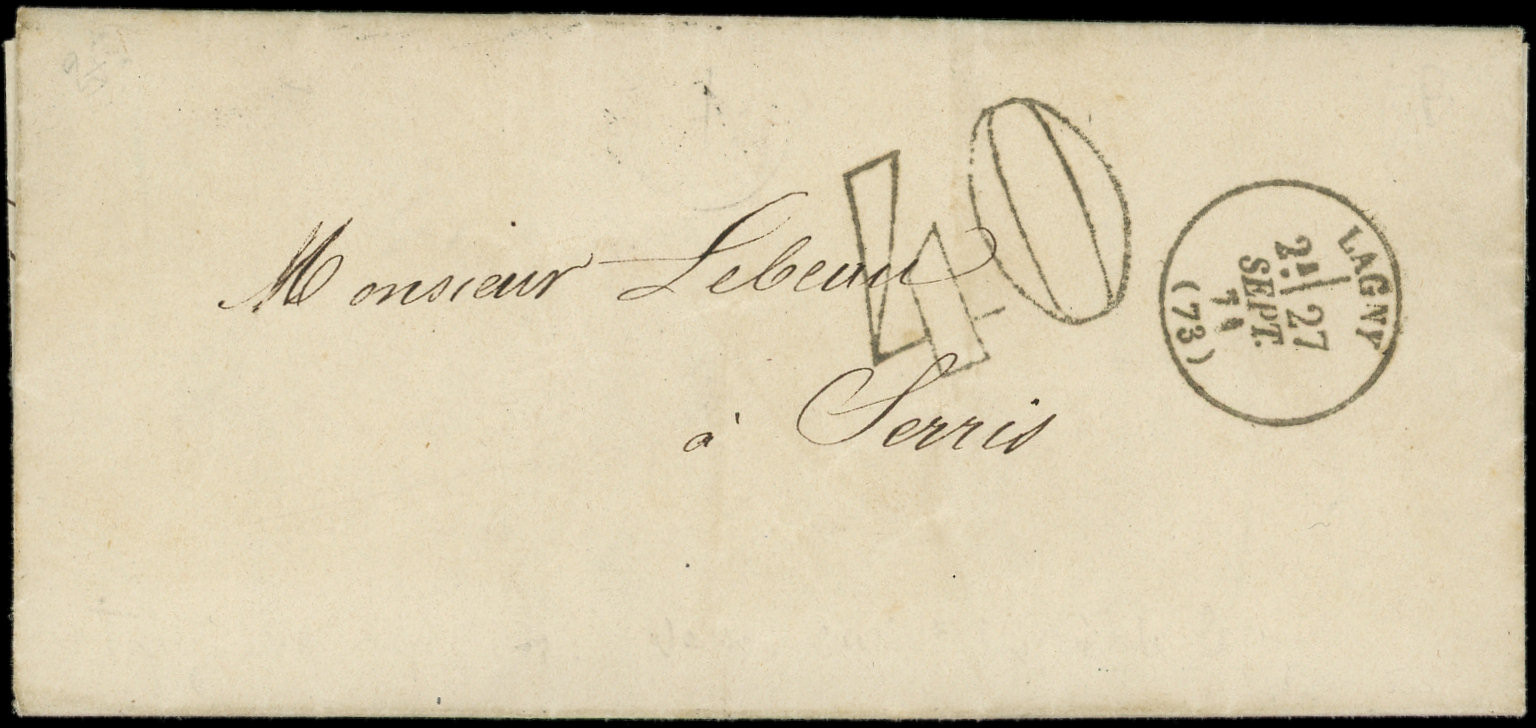 40
LAGNY
2E 27
SEPT.
71
(73)
Monsieur Lebeau
à Serris